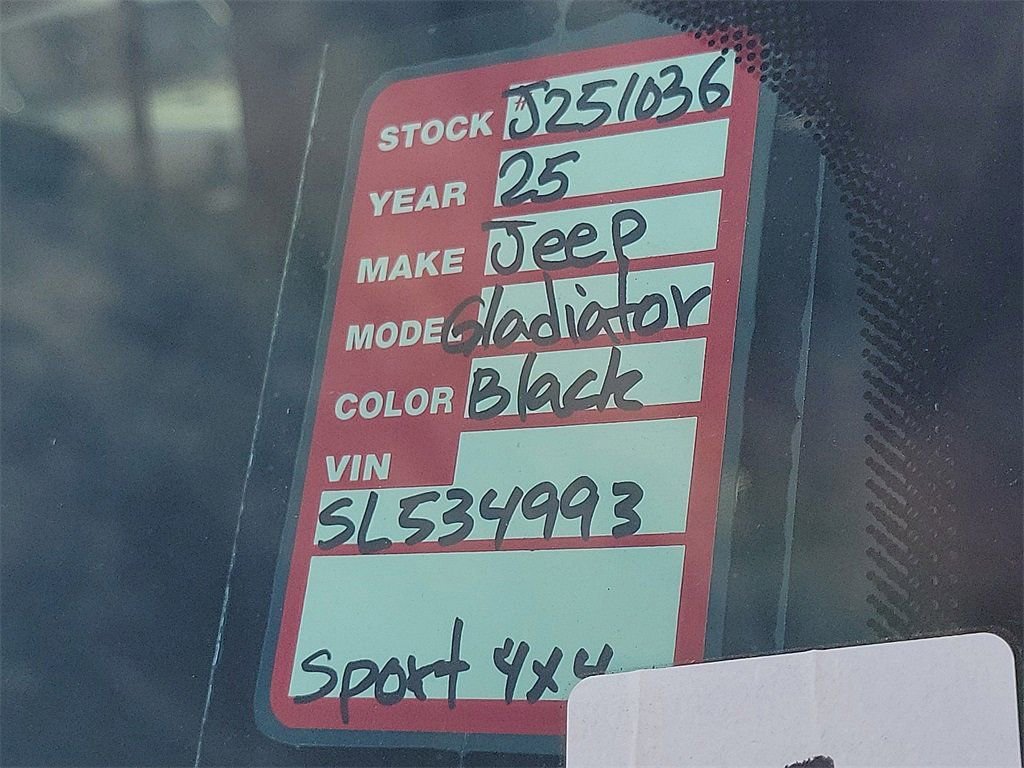 STOCK #J251036
YEAR 25
MAKE Jeep
MODEL Gladiator
COLOR Black
VIN
SL534993
Sport 4x4